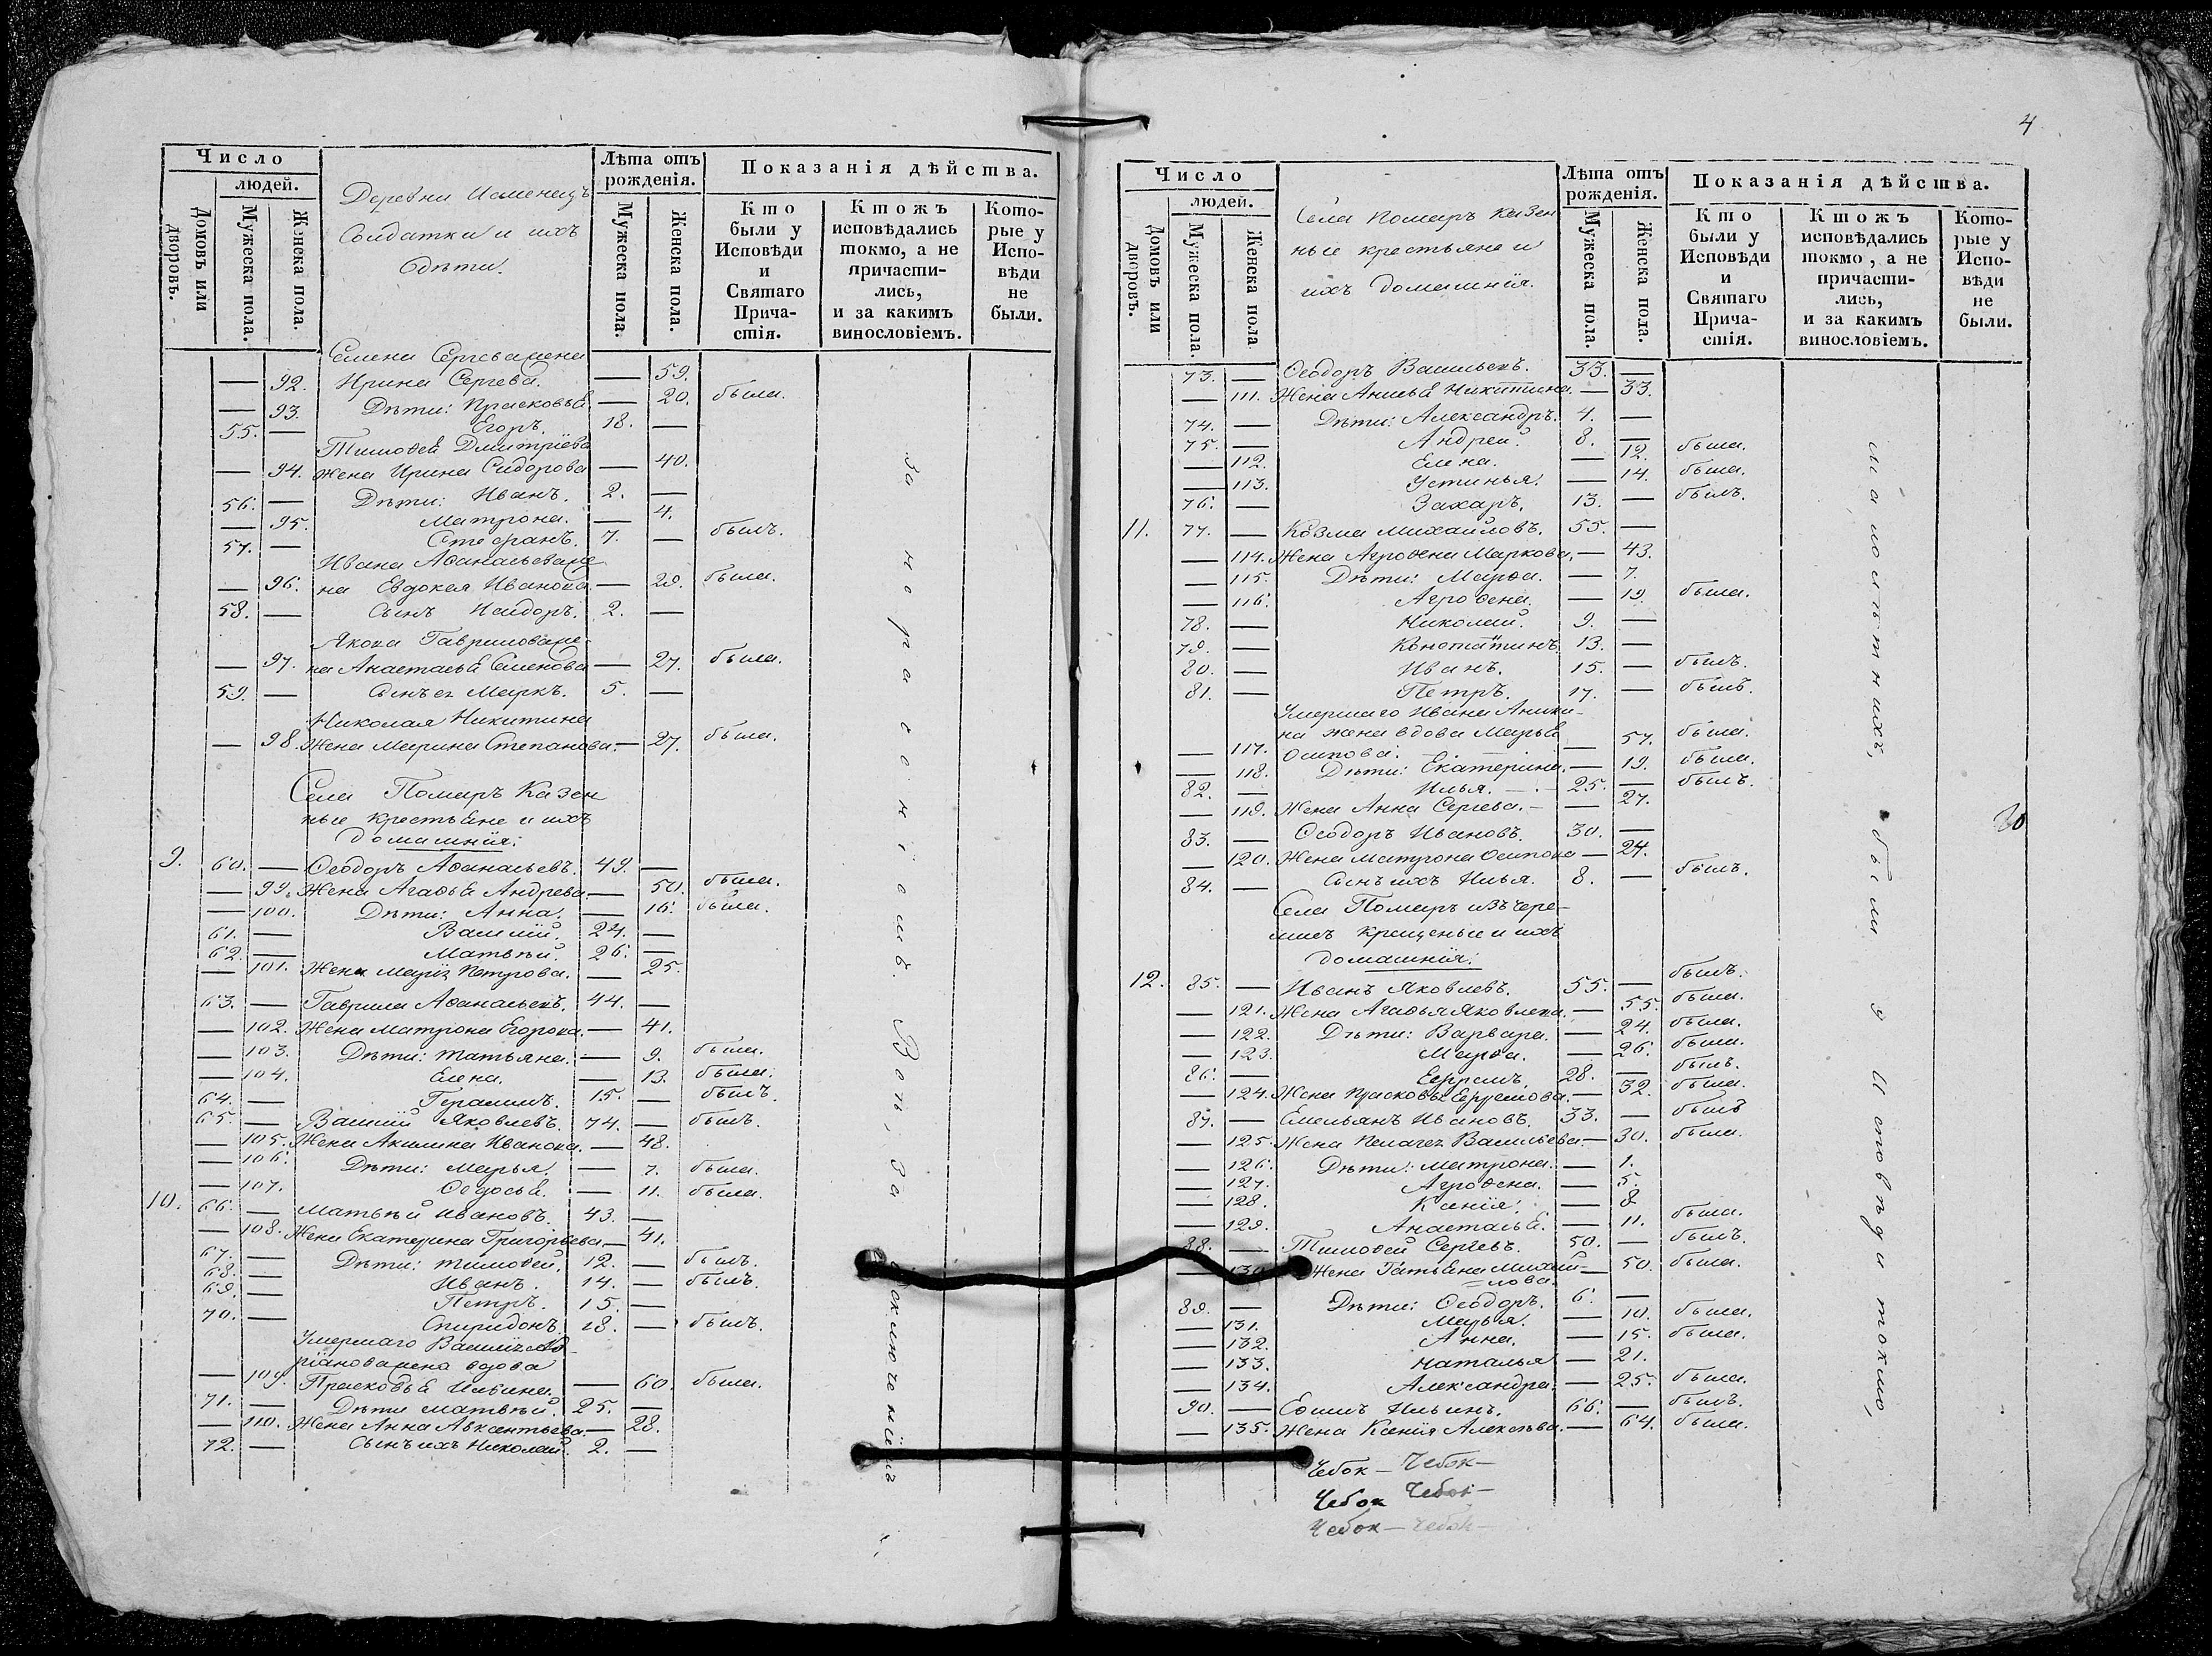 Число
людей.
Домовъ или дворовъ.
Мужеска пола.
Женска пола.
Деревни
Солдатки и ихъ
дѣти.
Лѣта отъ рожденія.
Мужеска пола.
Женска пола.
Показанія дѣйства.
Кто были у Исповѣди и Святаго Прича-стія.
Ктожъ исповѣдались токмо, а не причасти-лись, и за какимъ винословіемъ.
Кото-рые у Испо-вѣди не были.
Семена Сергева жена
— 92. Ирина Сергева. — 59.
— 93. Дѣти: Прасковья — 20. была.
55. — Егоръ. 18. —
Тимофея Дмитріева
— 94. жена Ирина Сидорова — 40.
56. — Дѣти: Иванъ. 2. —
— 95. Матрона. — 4.
57. — Стефанъ. 7. — былъ.
Ивана Афанасьева же
— 96. на Евдокея Иванова — 29. была.
58. — Сынъ Исидоръ. 2. —
Якова Гаврилова же
— 97. на Анастасья Семенова — 27. была.
59. — Сынъ ея Маркъ. 5. —
Николая Никитина
— 98. Жена Марина Степанова. — 27. была.
Села Помаръ Казен
ные крестьяне и ихъ
домашнія:
9. 60. — Ѳеодоръ Аѳанасьевъ. 49. —
— 99. Жена Агафья Андрева — 50. была.
— 100. Дѣти: Анна. — 16. была.
61. — Василій. 24. —
62. — Матвѣй. 26. —
— 101. Жена Марія Петрова. — 25.
63. — Гаврила Аѳанасьевъ. 44. —
— 102. Жена Матрона Егорова. — 41.
— 103. Дѣти: Татьяна. — 9. была.
— 104. Елена. — 13. была.
64. — Герасимъ. 15. — былъ.
65. — Василій Яковлевъ. 74. — былъ.
— 105. Жена Акилина Иванова. — 48.
— 106. Дѣти: Марья. — 7. была.
— 107. Ѳедосья. — 11. была.
10. 66. — Матвѣй Ивановъ. 43. —
— 108. Жена Екатерина Григорьева — 41.
67. — Дѣти: Тимофей. 12. — былъ.
68. — Иванъ. 14. — былъ.
69. — Петръ. 15. —
70. — Спиридонъ. 18. — былъ.
Умершаго Василія
вдова
— 109. Прасковья Ильина. — 60. была.
71. — Дѣти Матвѣй. 25. —
— 110. Жена Анна Авксентьева. — 28.
72. — Сынъ ихъ Николай. 2. —
За нераѳѣніемъ. Вонъ, за исключеніемъ
4
Число
людей.
Домовъ или дворовъ.
Мужеска пола.
Женска пола
Села Помаръ Казен
ные крестьяне и
ихъ домашнія.
Лѣта отъ рожденія.
Мужеска пола.
Женска пола.
Показанія дѣйства.
Кто были у Исповѣди и Святаго Прича-стія.
Ктожъ исповѣдались токмо, а не причасти-лись, и за какимъ винословіемъ.
Кото-рые у Испо-вѣди не были.
73. — Ѳеодоръ Васильевъ. 33. —
— 111. Жена Анисья Никитина. — 33.
74. — Дѣти: Александръ. 4. —
75. — Андрей. 8. —
— 112. Елена. — 12. была.
— 113. Устинья. — 14. была.
76. — Захаръ. 13. — былъ.
11. 77. — Козма Михайловъ. 55. —
— 114. Жена Агрофена Маркова. — 43.
— 115. Дѣти: Марѳа. — 7.
— 116. Агрофена. — 19. была.
78. — Николай. 9. —
79. — Констатинъ 13. —
80. — Иванъ. 15. — былъ.
81. — Петръ. 17. — былъ.
Умершаго Ивана Аники-
на жена вдова Марья
— 117. Осипова. — 57. была.
— 118. Дѣти: Екатерина. — 19. была.
82. — Илья. 25. — былъ.
— 119. Жена Анна Сергева. — 27.
83. — Ѳеодоръ Ивановъ. 30. —
— 120. Жена Матрона Осипова — 24.
84. — Сынъ ихъ Илья. 8. — былъ.
Села Помаръ изъ чере-
мисъ крещеные и ихъ
домашнія:
12. 85. — Иванъ Яковлевъ. 55. — былъ.
— 121. Жена Агафья Яковлева. — 55. была.
— 122. Дѣти: Варвара. — 24. была.
— 123. Марѳа. — 26. была.
86. — Ефремъ. 28. — былъ.
— 124. Жена Прасковья Ефремова. — 32. была.
87. — Емельянъ Ивановъ. 33. — былъ
— 125. Жена Пелагея Васильева — 30. была.
— 126. Дѣти: Матрона. — 1.
— 127. Агрофена. — 5.
— 128. Ксенія. — 8
— 129. Анастасья. — 11. была.
88. — Тимофей Сергевъ. 50. — былъ.
— 130. Жена Татьяна Михай- — 50. была.
лова.
89. — Дѣти: Ѳеодоръ. 6. —
— 131. Марья. — 10. была.
— 132. Анна. — 15. была.
— 133. Наталья — 21.
— 134. Александра. — 25. была.
90. — Ефимъ Ильинъ. 66. — былъ.
— 135. Жена Ксенія Алексѣева. — 64. была.
малолѣтнихъ, были у Исповѣди токмо,
30
Чебок — Чебок —
Чебок Чебок —
Чебок — Чебок —